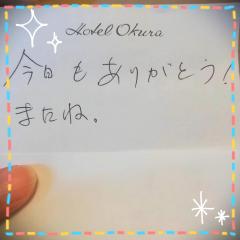 Hotel Okura
今日もありがとう!
またね。